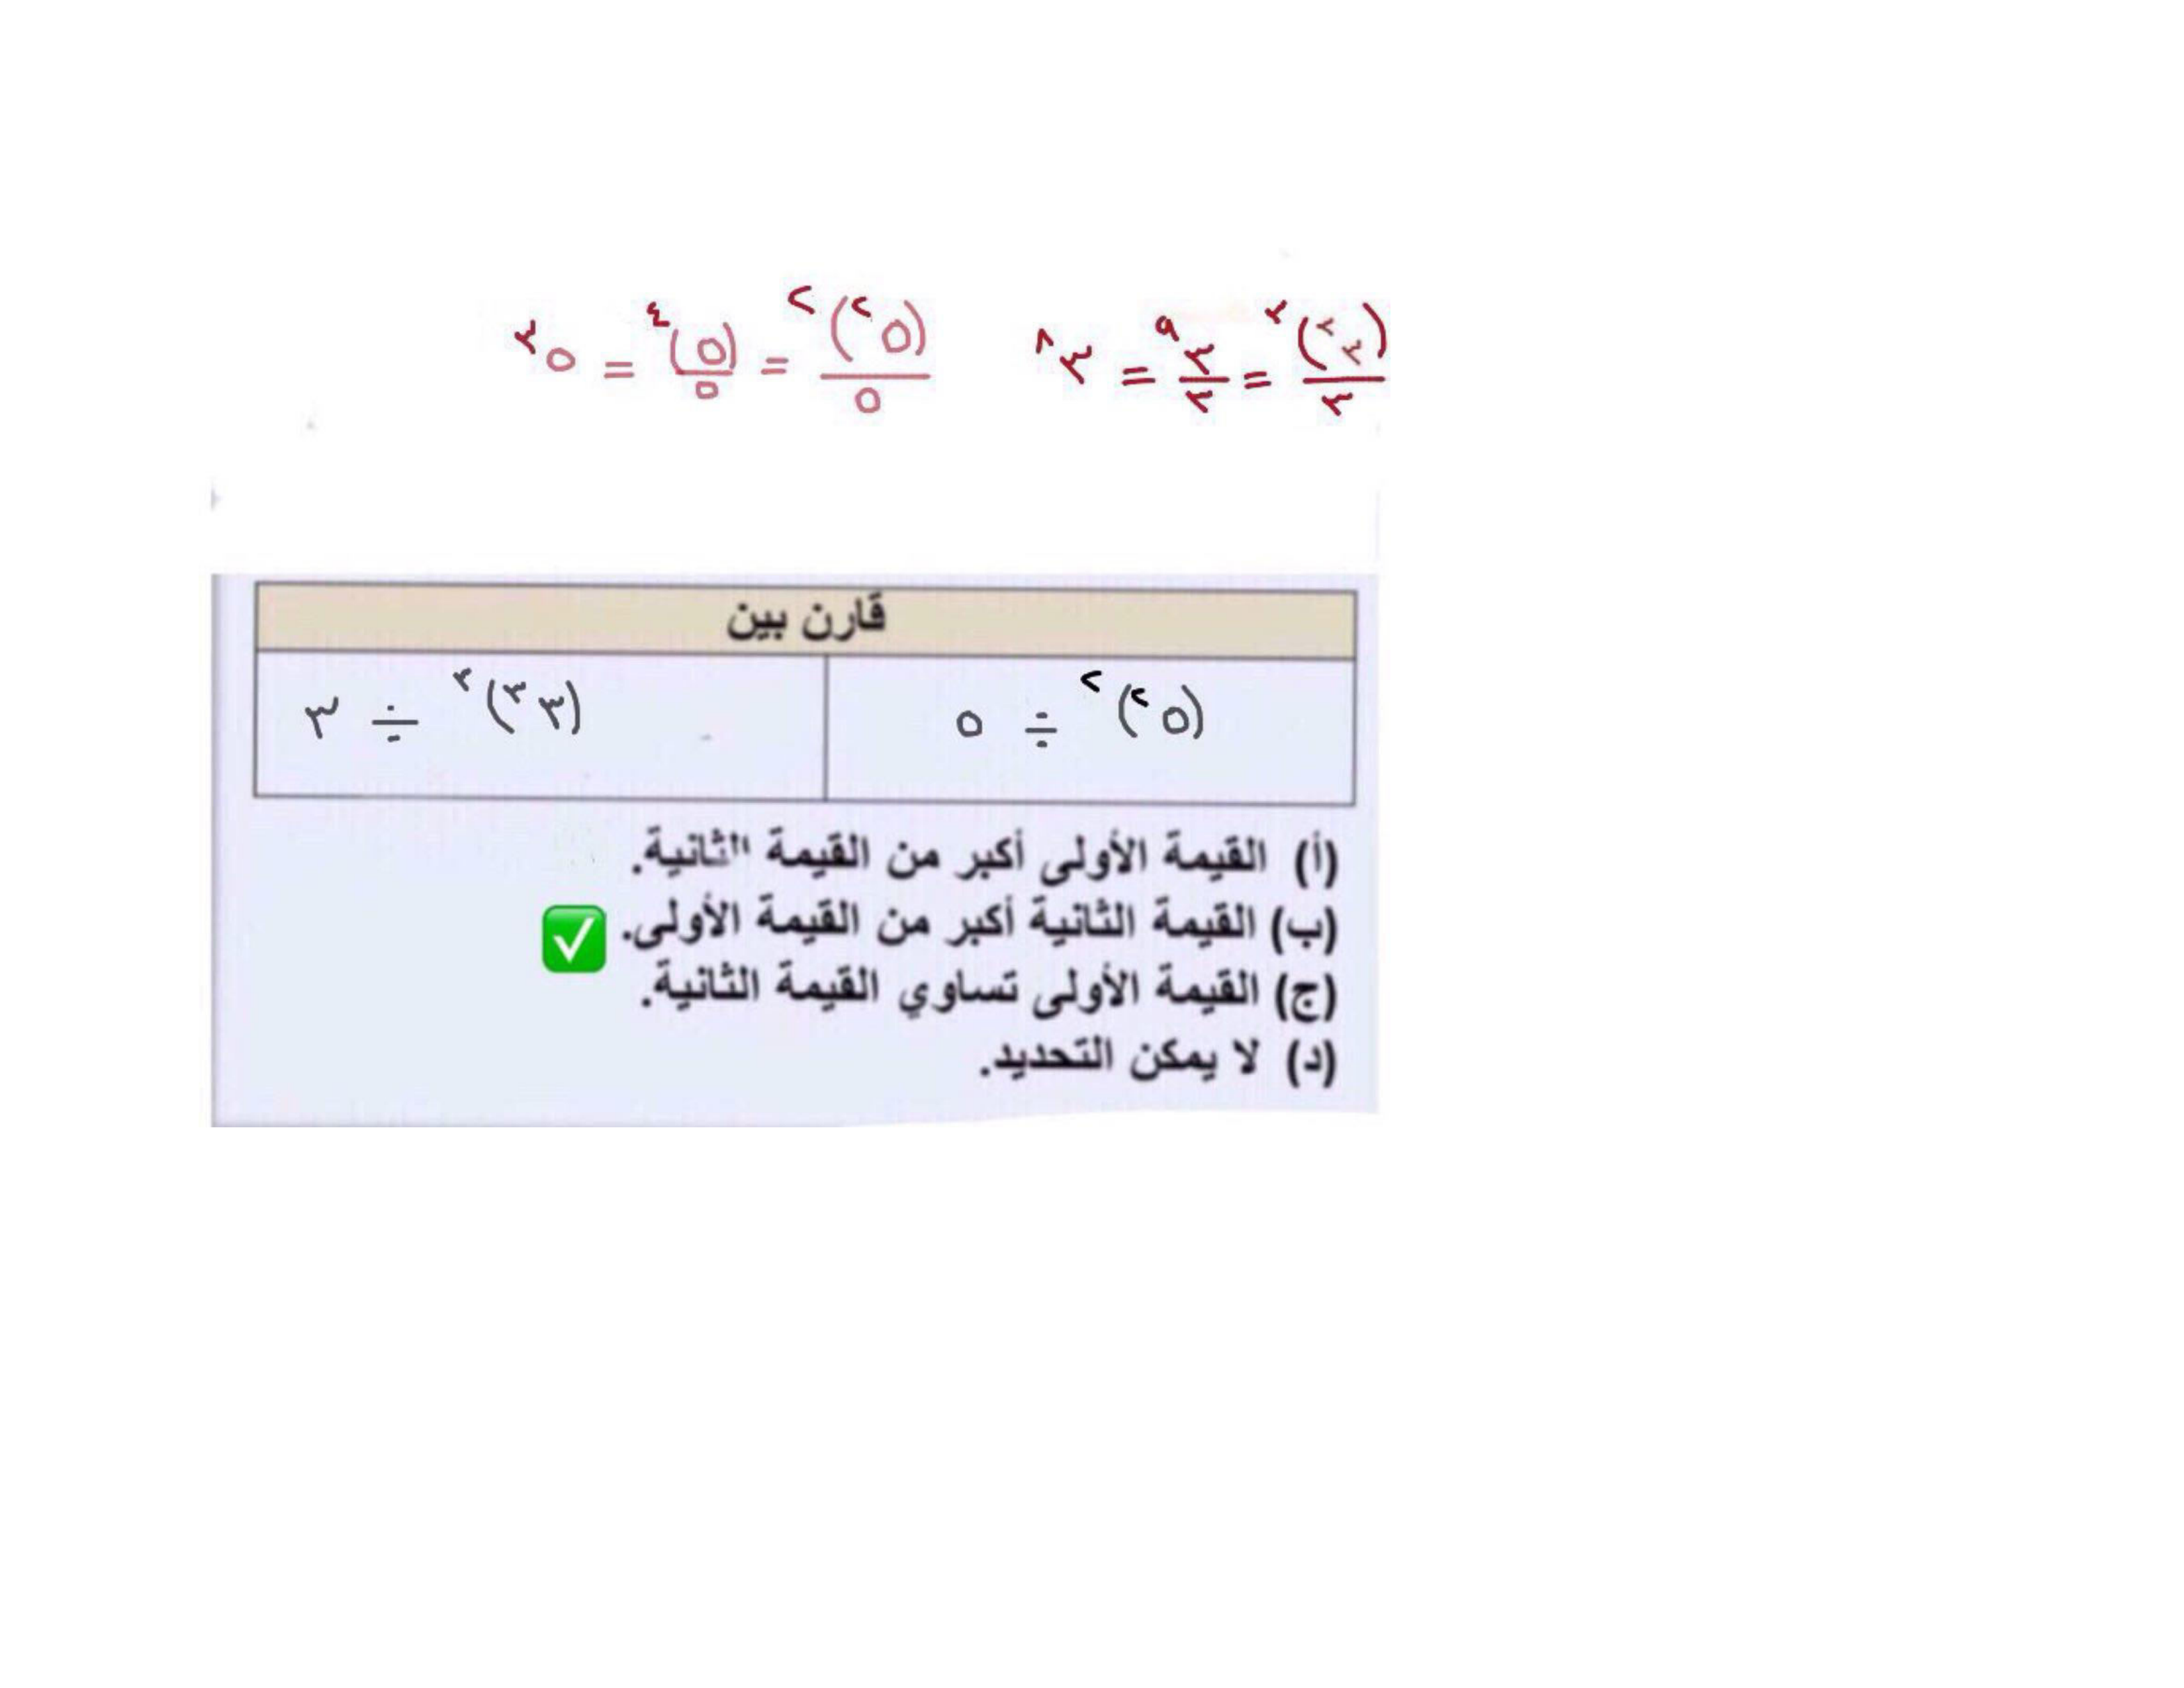 (٣ ٣)٣ / ٣ = ٣ ٩ / ٣ = ٣ ٨
(٥ ٢)٢ / ٥ = (٥)٤ / ٥ = ٥ ٣
قارن بين
(٥ ٢)٢ ÷ ٥
(٣ ٣)٣ ÷ ٣
(أ) القيمة الأولى أكبر من القيمة الثانية.
(ب) القيمة الثانية أكبر من القيمة الأولى. ✅
(ج) القيمة الأولى تساوي القيمة الثانية.
(د) لا يمكن التحديد.